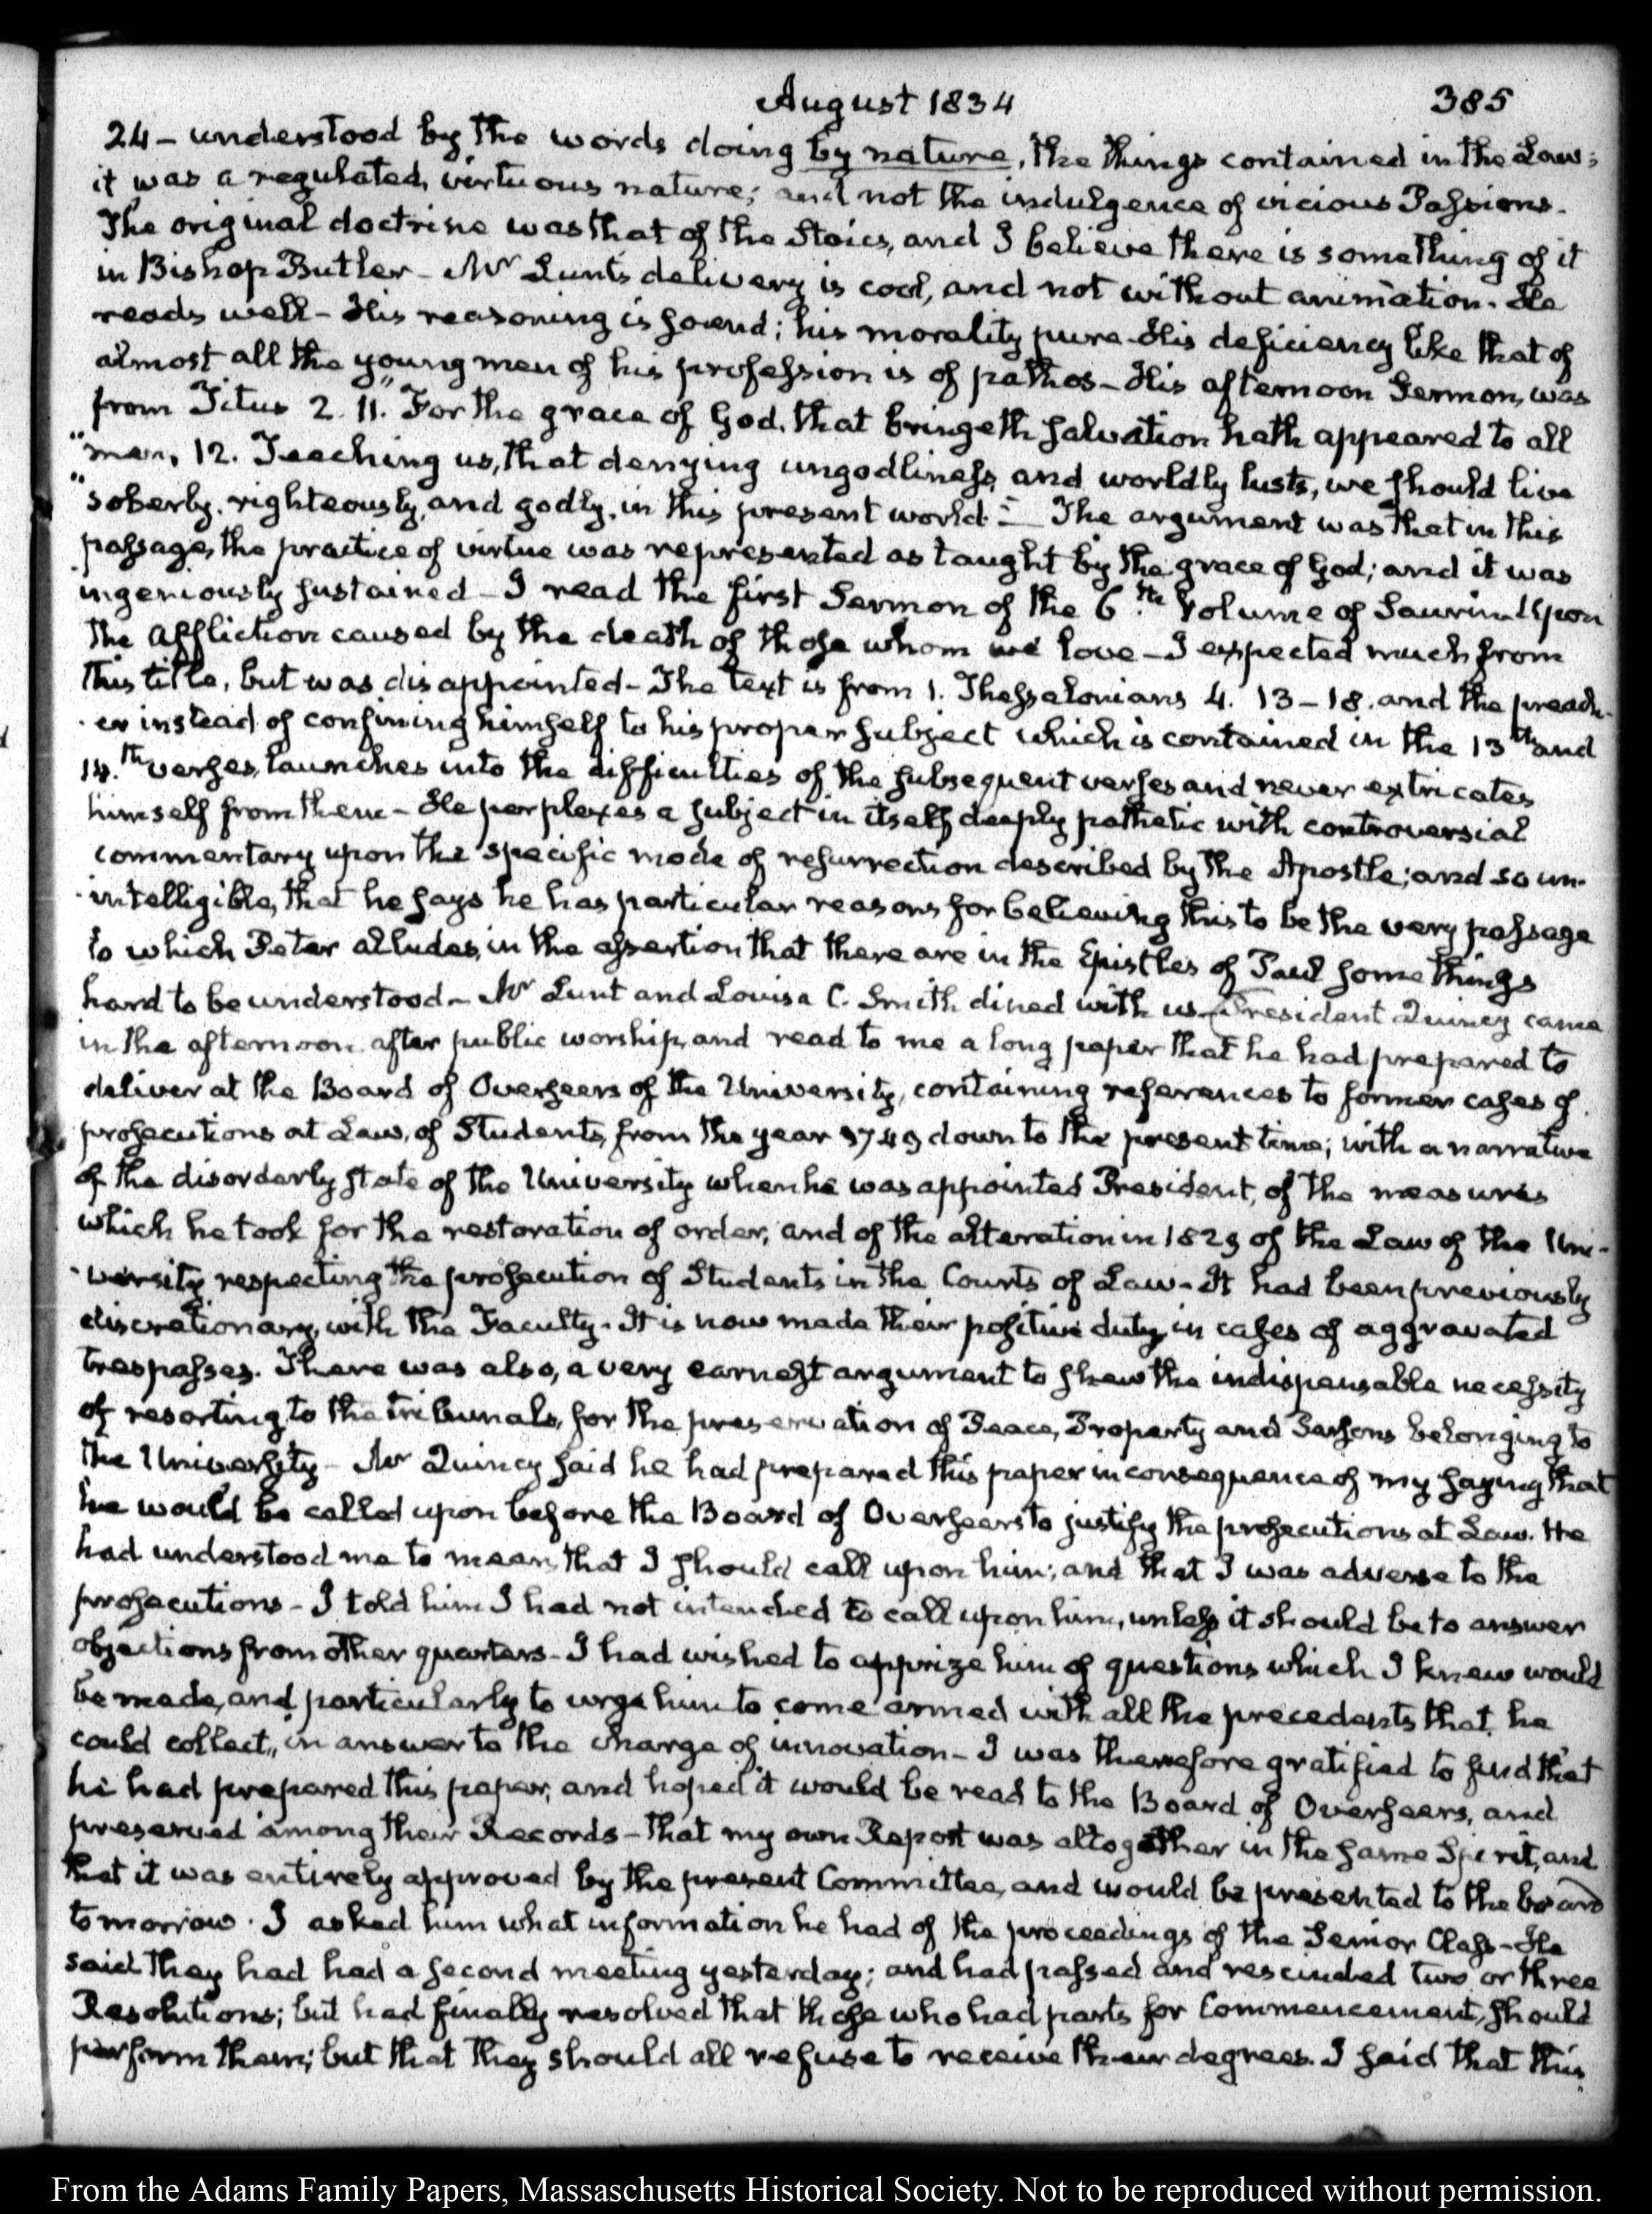 August 1834
385
24 - understood by the words doing by nature, the things contained in the Law;
it was a regulated, virtuous nature; and not the indulgence of vicious Passions.
The original doctrine was that of the Stoics, and I believe there is something of it
in Bishop Butler - Mr Lunt's delivery is cool, and not without animation. He
reads well - His reasoning is sound; his morality pure. His deficiency like that of
almost all the young men of his profession is of pathos - His afternoon Sermon, was
from Titus 2. 11. "For the grace of God, that bringeth salvation hath appeared to all
"men, 12. Teaching us, that denying ungodliness and worldly lusts, we should live
"soberly, righteously, and godly, in this present world." - The argument was that in this
passage, the practice of virtue was represented as taught by the grace of God; and it was
ingeniously sustained - I read the first Sermon of the 6th Volume of Saurin. Upon
the affliction caused by the death of those whom we love - I expected much from
this title, but was disappointed - The text is from 1. Thessalonians 4. 13-18. and the preach-
er instead of confining himself to his proper subject which is contained in the 13th and
14.th verses, launches into the difficulties of the subsequent verses and never extricates
himself from them - He perplexes a subject in itself deeply pathetic with controversial
commentary upon the specific mode of resurrection described by the Apostle; and so un-
-intelligible, that he says he has particular reasons for believing this to be the very passage
to which Peter alludes, in the assertion that there are in the Epistles of Paul some things
hard to be understood - Mr Lunt and Louisa C. Smith dined with us - President Quincy came
in the afternoon after public worship, and read to me a long paper that he had prepared to
deliver at the Board of Overseers of the University, containing references to former cases of
prosecutions at Law, of Students, from the year 1749 down to the present time; with a narrative
of the disorderly state of the University when he was appointed President, of the measures
which he took for the restoration of order, and of the alteration in 1829 of the Law of the Uni-
-versity respecting the prosecution of Students in the Courts of Law - It had been previously
discretionary, with the Faculty. It is now made their positive duty, in cases of aggravated
trespasses. There was also, a very earnest argument to shew the indispensable necessity
of resorting to the tribunals, for the preservation of Peace, Property and Persons belonging to
the University - Mr Quincy said he had prepared this paper in consequence of my saying that
he would be called upon before the Board of Overseers to justify the prosecutions at Law. He
had understood me to mean, that I should call upon him; and that I was adverse to the
prosecutions - I told him I had not intended to call upon him, unless it should be to answer
objections from other quarters - I had wished to apprize him of questions which I knew would
be made, and particularly to urge him to come armed with all the precedents that he
could collect, in answer to the charge of innovation - I was therefore gratified to find that
he had prepared this paper, and hoped it would be read to the Board of Overseers, and
preserved among their Records - That my own Report was altogether in the same Spirit, and
that it was entirely approved by the present Committee, and would be presented to the board
tomorrow. I asked him what information he had of the proceedings of the Senior Class - He
said they had had a second meeting yesterday; and had passed and rescinded two or three
Resolutions; but had finally resolved that those who had parts for Commencement, should
perform them; but that they should all refuse to receive their degrees. I said that this
From the Adams Family Papers, Massaschusetts Historical Society. Not to be reproduced without permission.